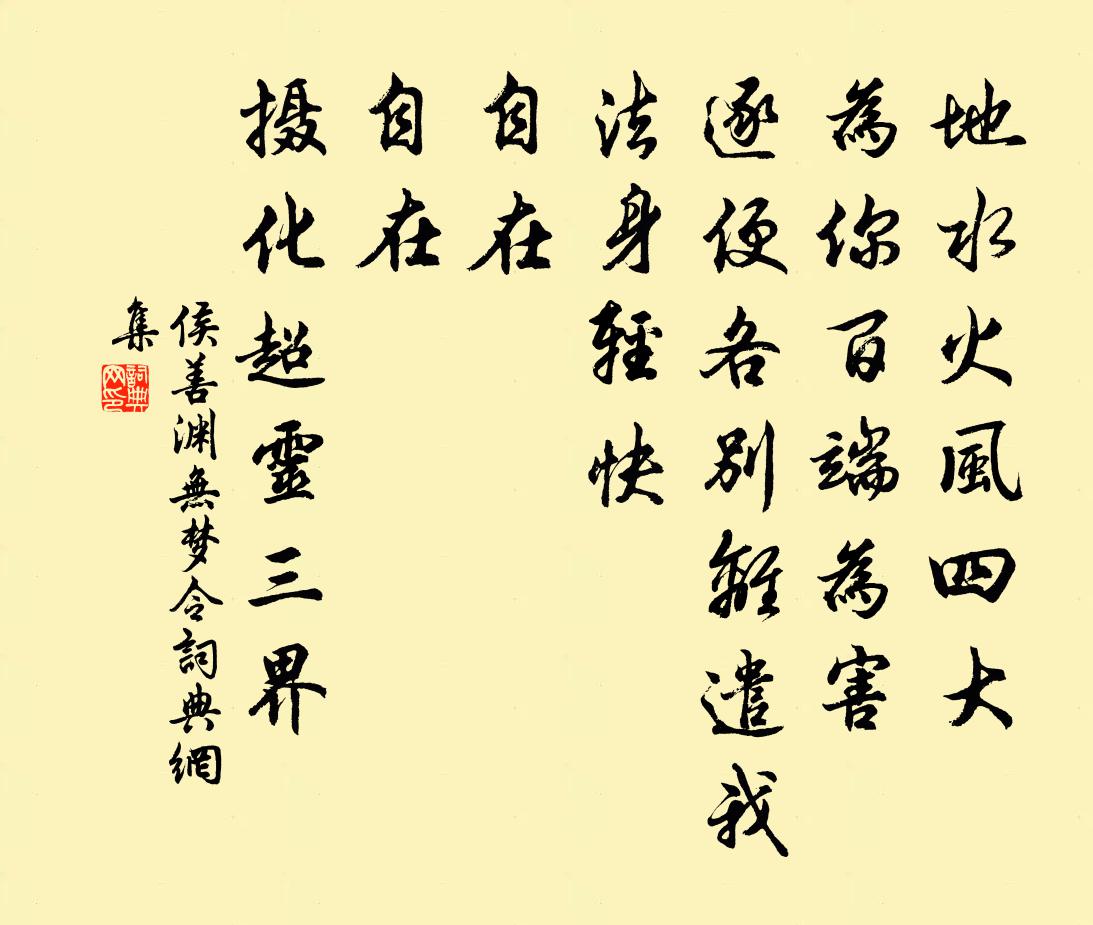 地水火風四大
為你百端為害
逐便各別離遣我
法身輕快
自在
自在
摄化超靈三界
侯善渊無梦令詞典網
集
詞典網印